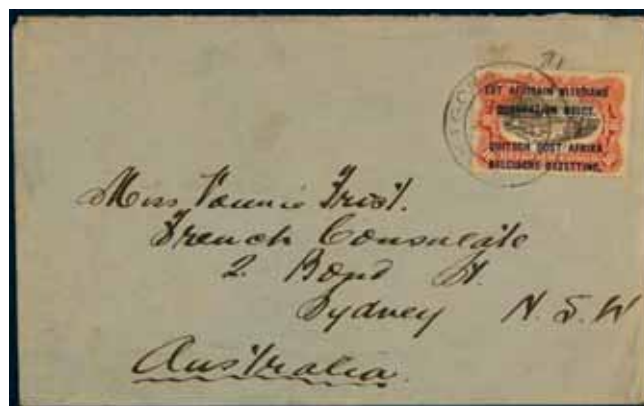 EST AFRICAIN ALLEMAND
OCCUPATION BELGE.
DUITSCH OOST AFRIKA.
BELGISCHE BEZETTING.
Miss
French Consulate
2. Bond St.
Sydney N.S.W
Australia.